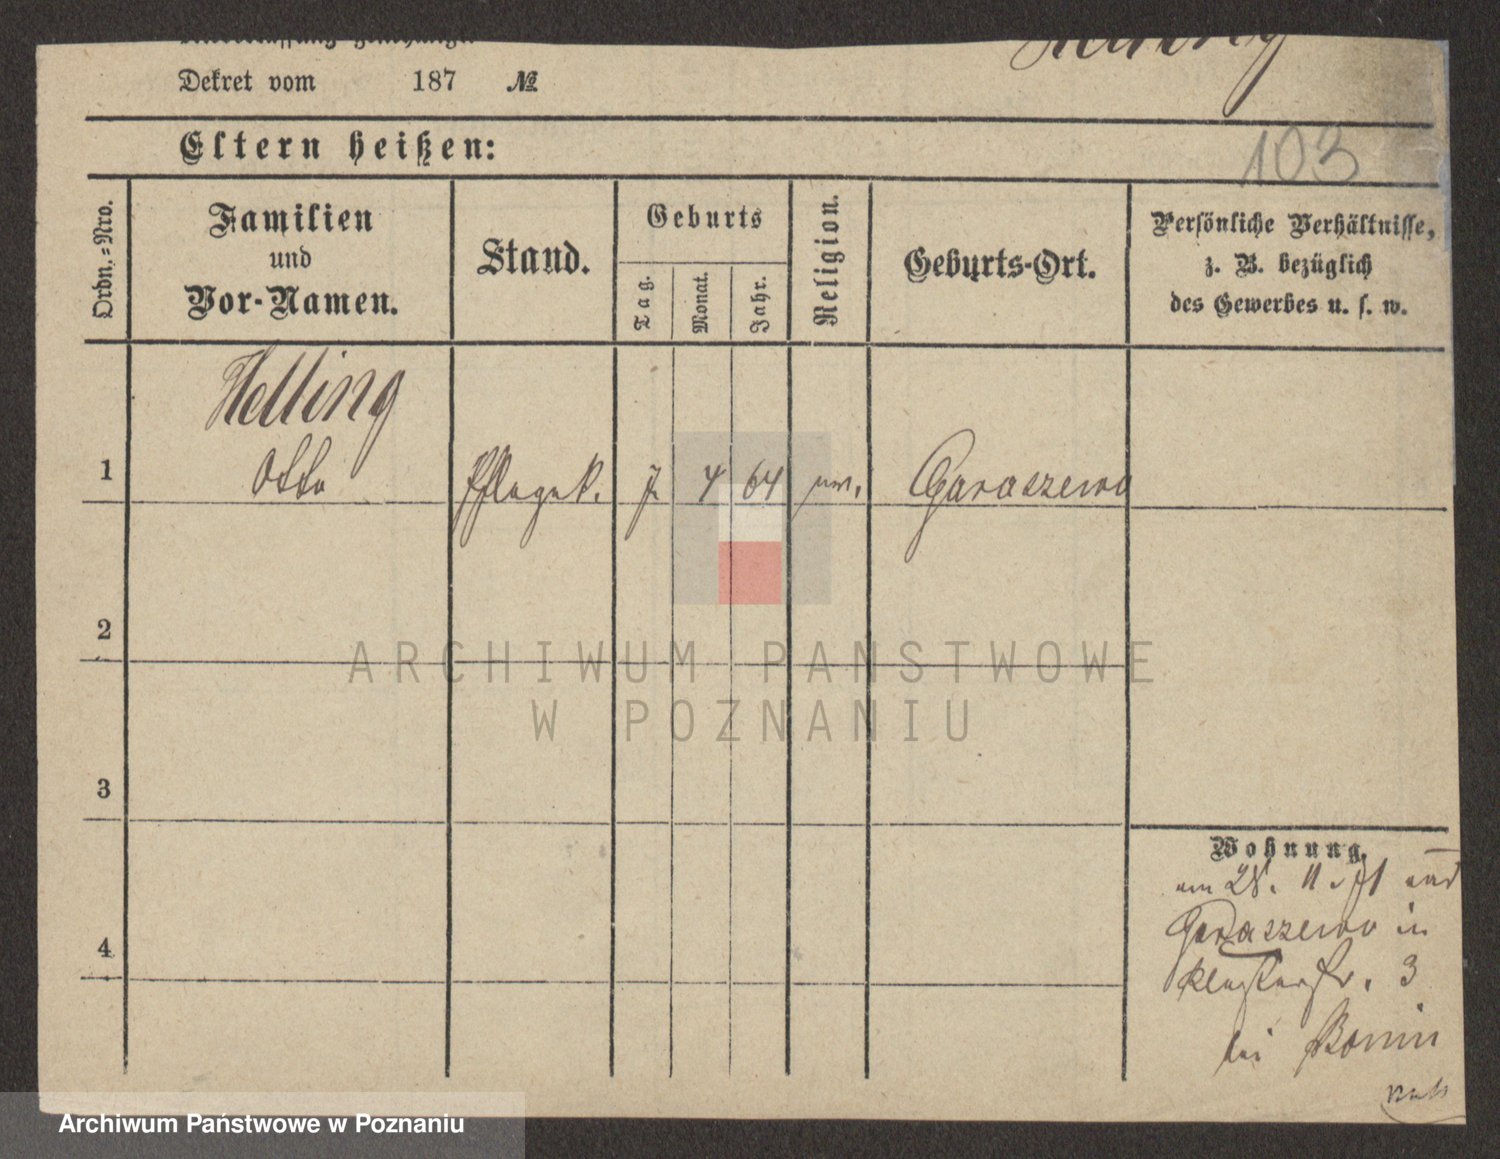 Dekret vom 187 №
103
Eltern heißen:
Ordn.-Nro.
Familien
und
Vor-Namen.
Stand.
Geburts
Tag.
Monat.
Jahr.
Religion.
Geburts-Ort.
Persönliche Verhältnisse,
z. B. bezüglich
des Gewerbes u. s. w.
Helling
1 Otto Pflegek. 7 4 64 ev. Garaszewo
2
3
4
Wohnung.
am 28. 11. 71 aus
Garaszewo in
Klosterstr. 3
bei Bonin
ARCHIWUM PAŃSTWOWE
W POZNANIU
Archiwum Państwowe w Poznaniu